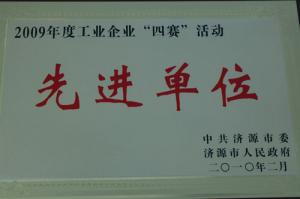 2009年度工业企业“四赛”活动
先进单位
中共济源市委
济源市人民政府
二〇一〇年二月